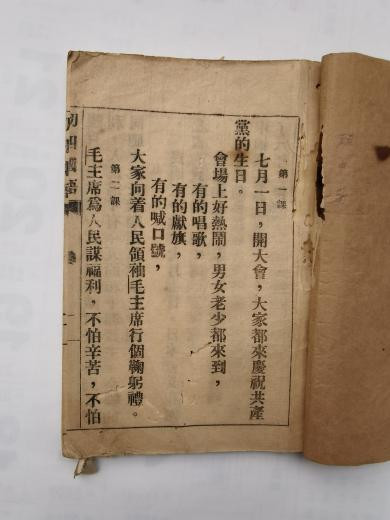 第一課
七月一日，開大會，大家都來慶祝共產
黨的生日。
會場上好熱鬧，男女老少都來到，
有的唱歌，
有的獻旗，
有的喊口號，
大家向着人民領袖毛主席行個鞠躬禮。
第二課
毛主席為人民謀福利，不怕辛苦，不怕
初四國語